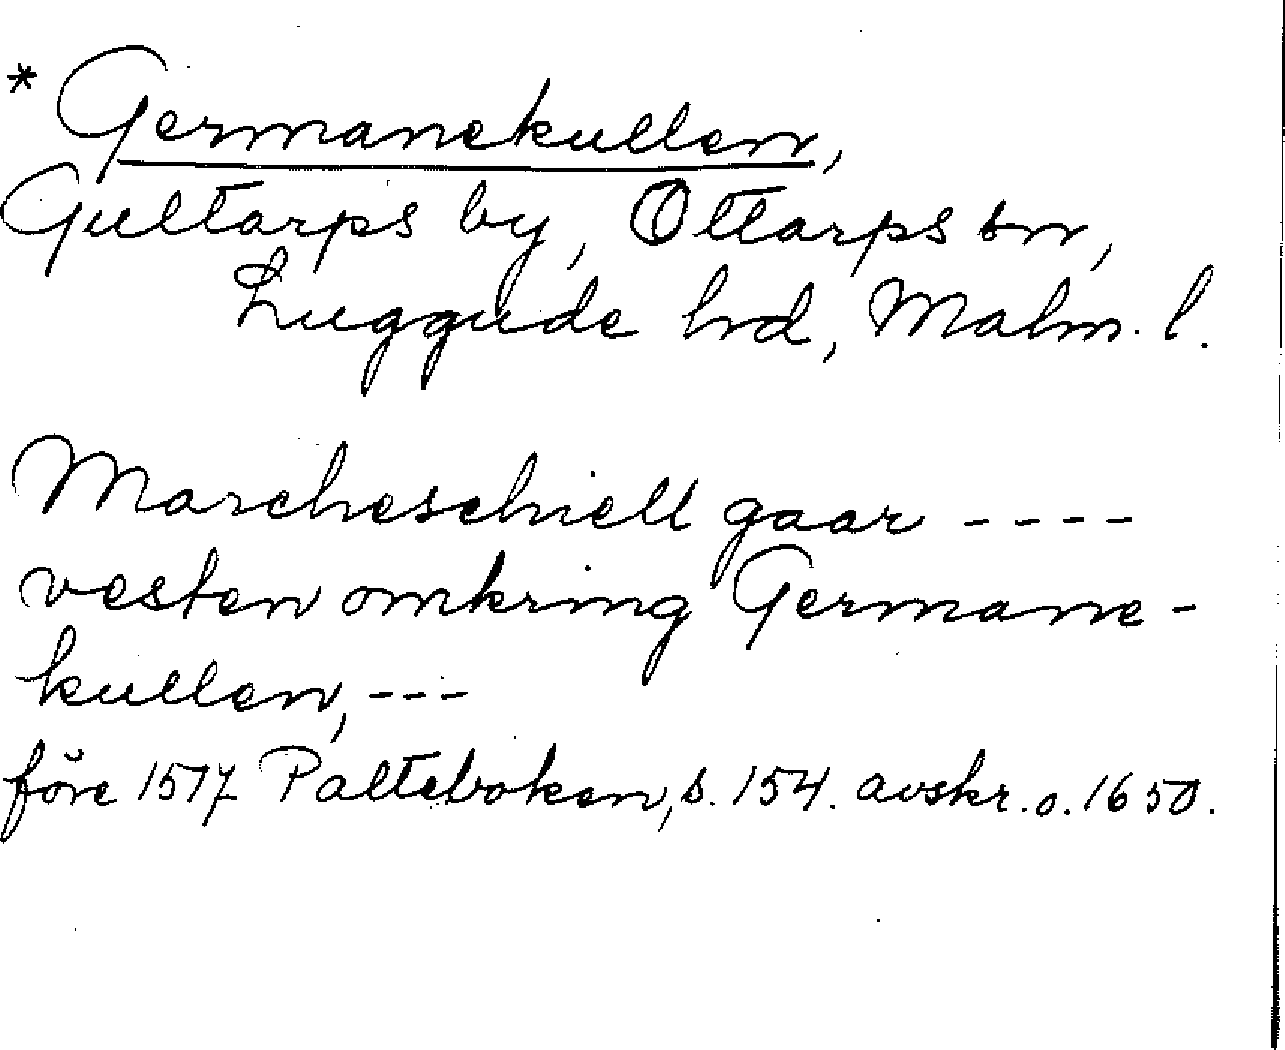 * Germanekullen,
Gultarps by, Ottarps sn,
Luggude hrd, Malm. l.
Marcheschiell gaar ----
vesten omkring Germane-
kullen, ---
före 1517 Palteboken, s. 154. avskr. o. 1650.